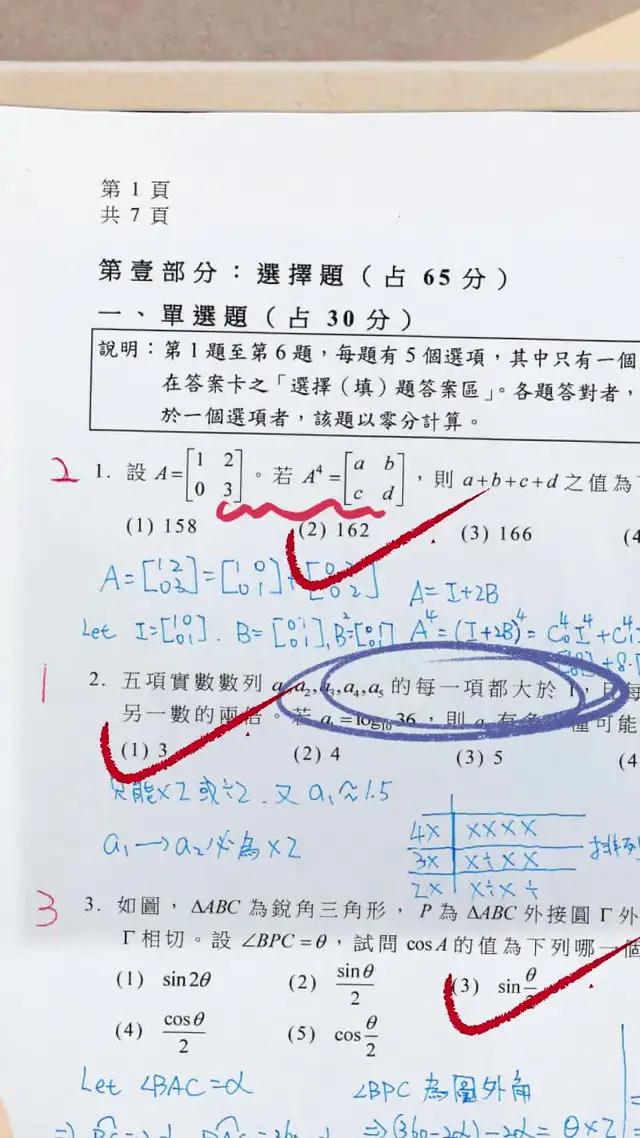 第 1 頁
共 7 頁
第壹部分：選擇題（占 65 分）
一、單選題（占 30 分）
說明：第 1 題至第 6 題，每題有 5 個選項，其中只有一個
在答案卡之「選擇（填）題答案區」。各題答對者，
於一個選項者，該題以零分計算。
2 1. 設 A=[1 2 0 3]。若 A⁴=[a b c d]，則 a+b+c+d 之值為
(1) 158 (2) 162 (3) 166 (4
A=[1 2 0 3]=[1 0 0 1]+ A=I+2B
Let I=[1 0 0 1]. B= A⁴=(I+2B)⁴=C⁴₀I⁴+C⁴₁
1 2. 五項實數數列 a₂,a₃,a₄,a₅ 的每一項都大於 1，且每
另一數的兩倍。若 a₁=log₁₀36，則 a 有多 種可能
(1) 3 (2) 4 (3) 5 (4
只能×2 或÷2. 又 a₁≈1.5
a₁→a₂必為×2
4× ××××
3× ×÷××
2× ×÷×÷
排列
3 3. 如圖，ΔABC 為銳角三角形，P 為 ΔABC 外接圓 Γ 外
Γ 相切。設 ∠BPC=θ，試問 cosA 的值為下列哪一個
(1) sin2θ (2) sinθ/2 (3) sin θ/2
(4) cosθ/2 (5) cos θ/2
Let ∠BAC=α ∠BPC 為圓外角
⇒(360-2α)-2α=θ×2